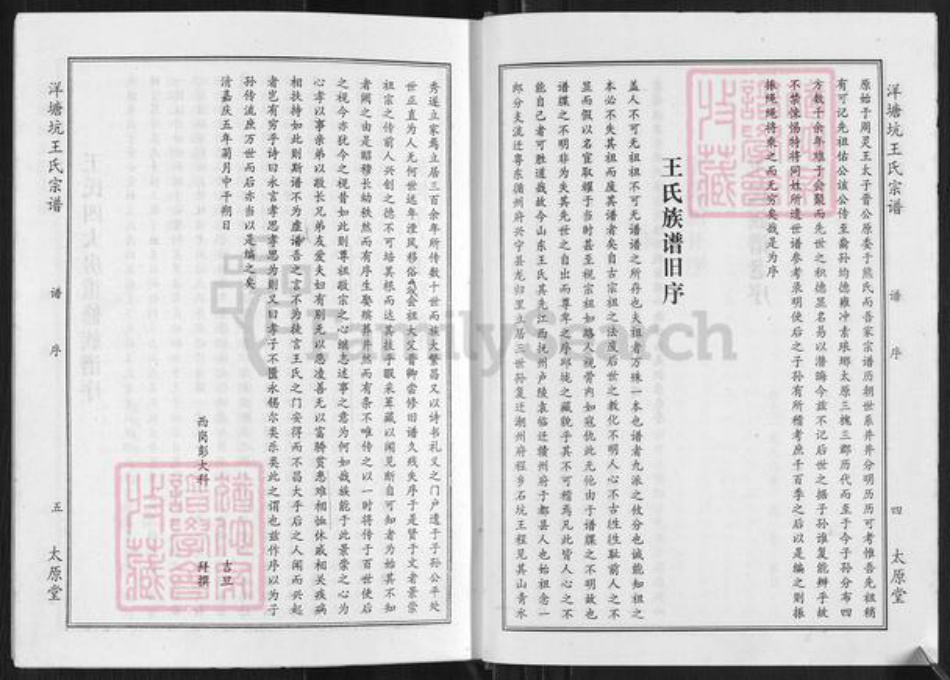 洋塘坑王氏宗谱
谱序
四
太原堂
原始于周灵王太子晋公原委于熊氏而吾家宗谱历朝世系井井分明历历可考惟吾先祖稍
有可记先祖佑公该公传至裔孙均德雍冲素琅琊太原三槐三郡历代而至于今子孙分布四
方数千余年难于会聚而先世之积德显名易以潜晦今兹不记后世之摇子孙谁复能辨乎故
不禁悚惕特将同姓所遗世谱参考录明使后之子孙有所稽考庶千百季之后以是编之则振
振绳绳将乘之而无穷矣哉是为序
王氏族谱旧序
盖人不可无祖祖不可无谱谱之所存也夫祖者万殊一本也谱者九派之攸分也诚能知祖之
本必不失其祖而废其谱者矣自古宗祖之法废后世之教化不明人心不古往往耻前人之不
显而假以名宦取耀于当时甚至视宗祖如路人视骨肉如寇仇此无他由于谱牒之不明故也
谱牒之不明非为失其先世之自出而尊卑之序邱垅之藏貌乎其不可稽焉凡此皆人心之不
能自己者可胜道哉故今山东王氏其先江西抚州卢陵袁临迁赣州府于都县人也始祖念一
郎分支流迁粤东循州府兴宁县龙归里立居三世孙复迁潮州府程乡石坑王程见其山青水
秀遂立家焉立居三百余年所传数十世而族大繁昌又以诗书礼义之门户遗于子孙公平处
世正直为人无何世远年湮风移俗
会祖大父晋卿尝修旧谱久残失序于是贤于文者景崇
祖宗之传前人兴创之德不可培其根而达其枝手眼采茟藏以闻见断自可知者为始其不知
者阙之由是昭穆长幼秩然而有序生娶殡葬井然而有条不唯传之以一时将传于百世使后
之视今亦犹今之视昔如此则尊祖敬宗之心继志述事之意为何如哉族能于此景崇之心为
心孝以事亲弟以敬长兄弟友爱夫妇有别无以恶凌善无以富骄贫患难相恤休戚相关疾病
相扶持如此则斯谱不为虚谱吾之言不为徒言王氏之门安得而不昌大乎后之人闻而兴起
者岂有穷乎诗曰永言孝思孝思为则又曰孝子不匮永锡尔类乐类此之谓也兹作序以为子
孙传流庶万世而后亦当以是编之矣
清嘉庆五年菊月中干朔日
西岗彭大科
古旦
拜撰
洋塘坑王氏宗谱
谱序
五
太原堂
FamilySearch